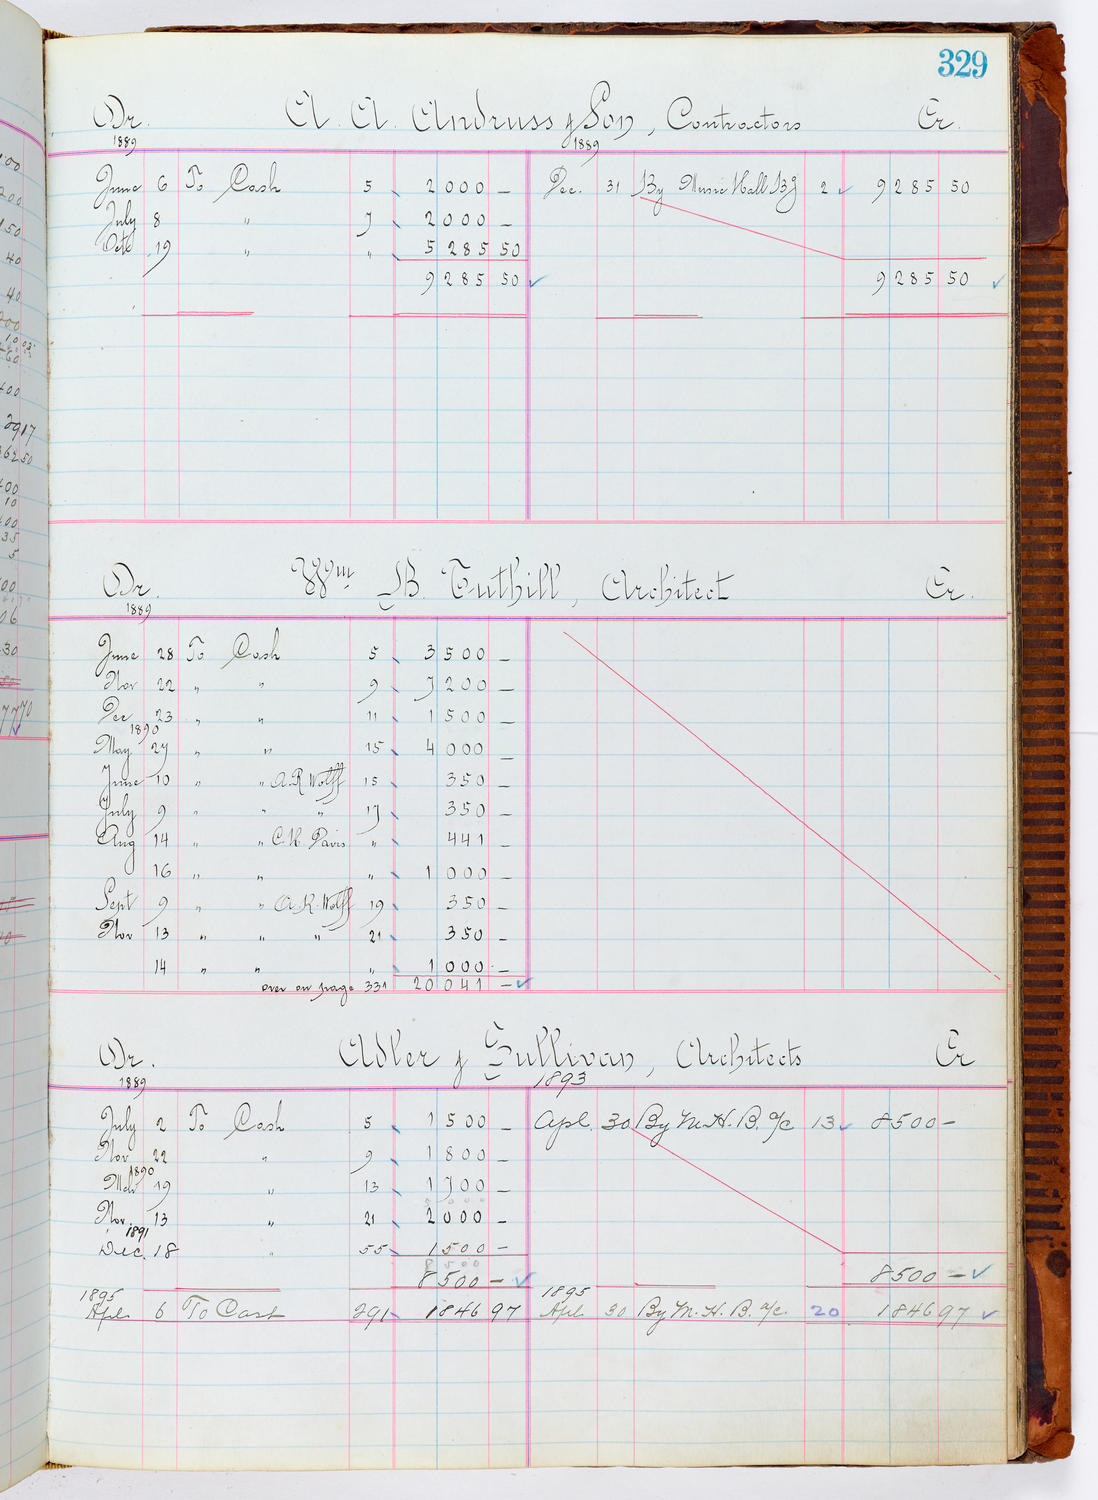 329
Dr. A. A. Andruss & Son, Contractors Cr.
1889 1889
June 6 To Cash 5 2000 — Dec. 31 By Music Hall Bg 2 9285 50
July 8 " 7 2000 —
Octo 19 " " 5285 50
9285 50 9285 50
Dr. Wm B. Tuthill, Architect Cr.
1889
June 28 To Cash 5 3500 —
Nov 22 " " 9 7200 —
Dec 23 " " 11 1500 —
1890
May 27 " " 15 4000 —
June 10 " " A.R. Wolff 15 350 —
July 9 " " " 17 350 —
Aug 14 " " C.H. Davis " 441 —
16 " " " 1000 —
Sept 9 " " A.R. Wolff 19 350 —
Nov 13 " " " 21 350 —
14 " " " 1000 —
over on page 331 20041 —
Dr. Adler & Sullivan, Architects Cr
1889 1893
July 2 To Cash 5 1500 — Apl. 30 By M.H.B. a/c 13 8500 —
Nov 22 " 9 1800 —
1890
Mch 19 " 13 1700 —
Nov. 13 " 21 2000 —
1891
Dec. 18 " 55 1500 —
8500
8500 — 8500 —
1895 1895
Apl. 6 To Cash 291 1846 97 Apl 30 By M.H.B. a/c. 20 1846 97